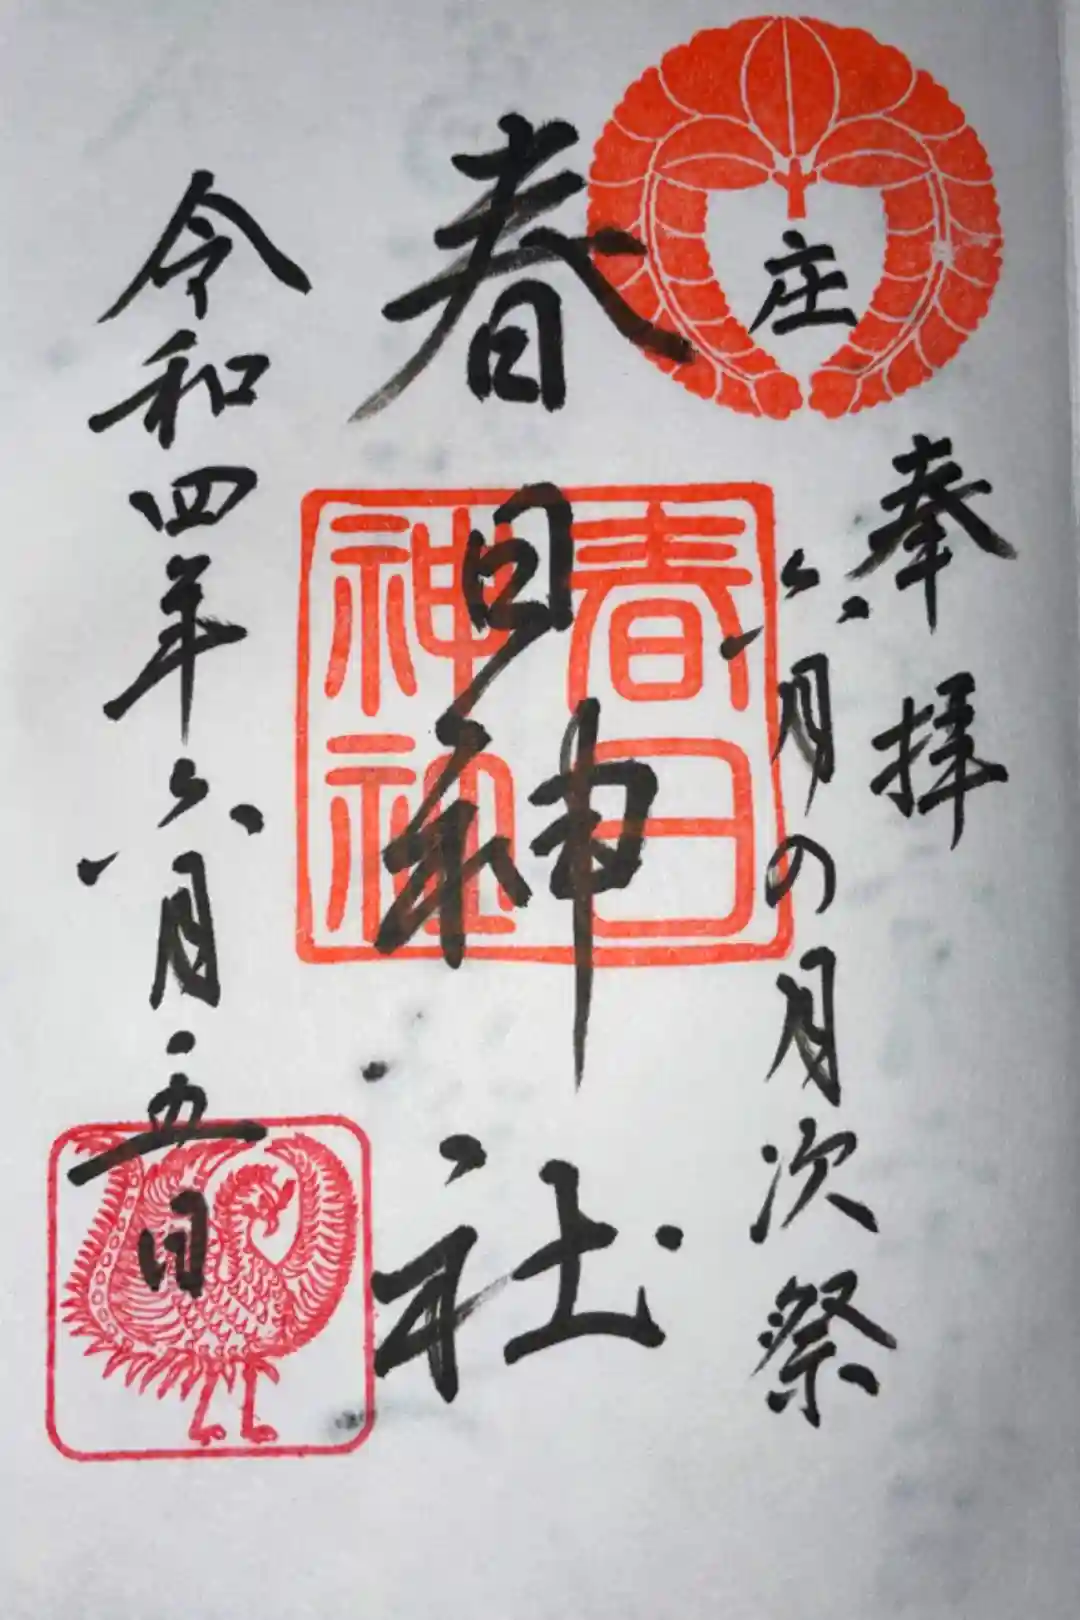 奉拝
庄
六月の月次祭
春日神社
春日
神社
令和四年六月五日